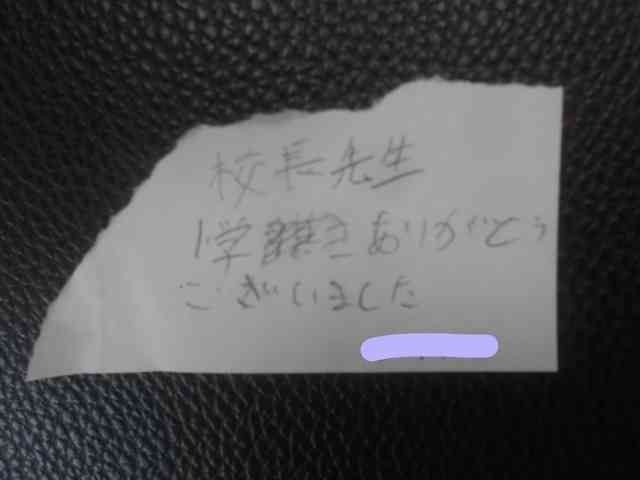 校長先生
1学期ありがとう
ございました